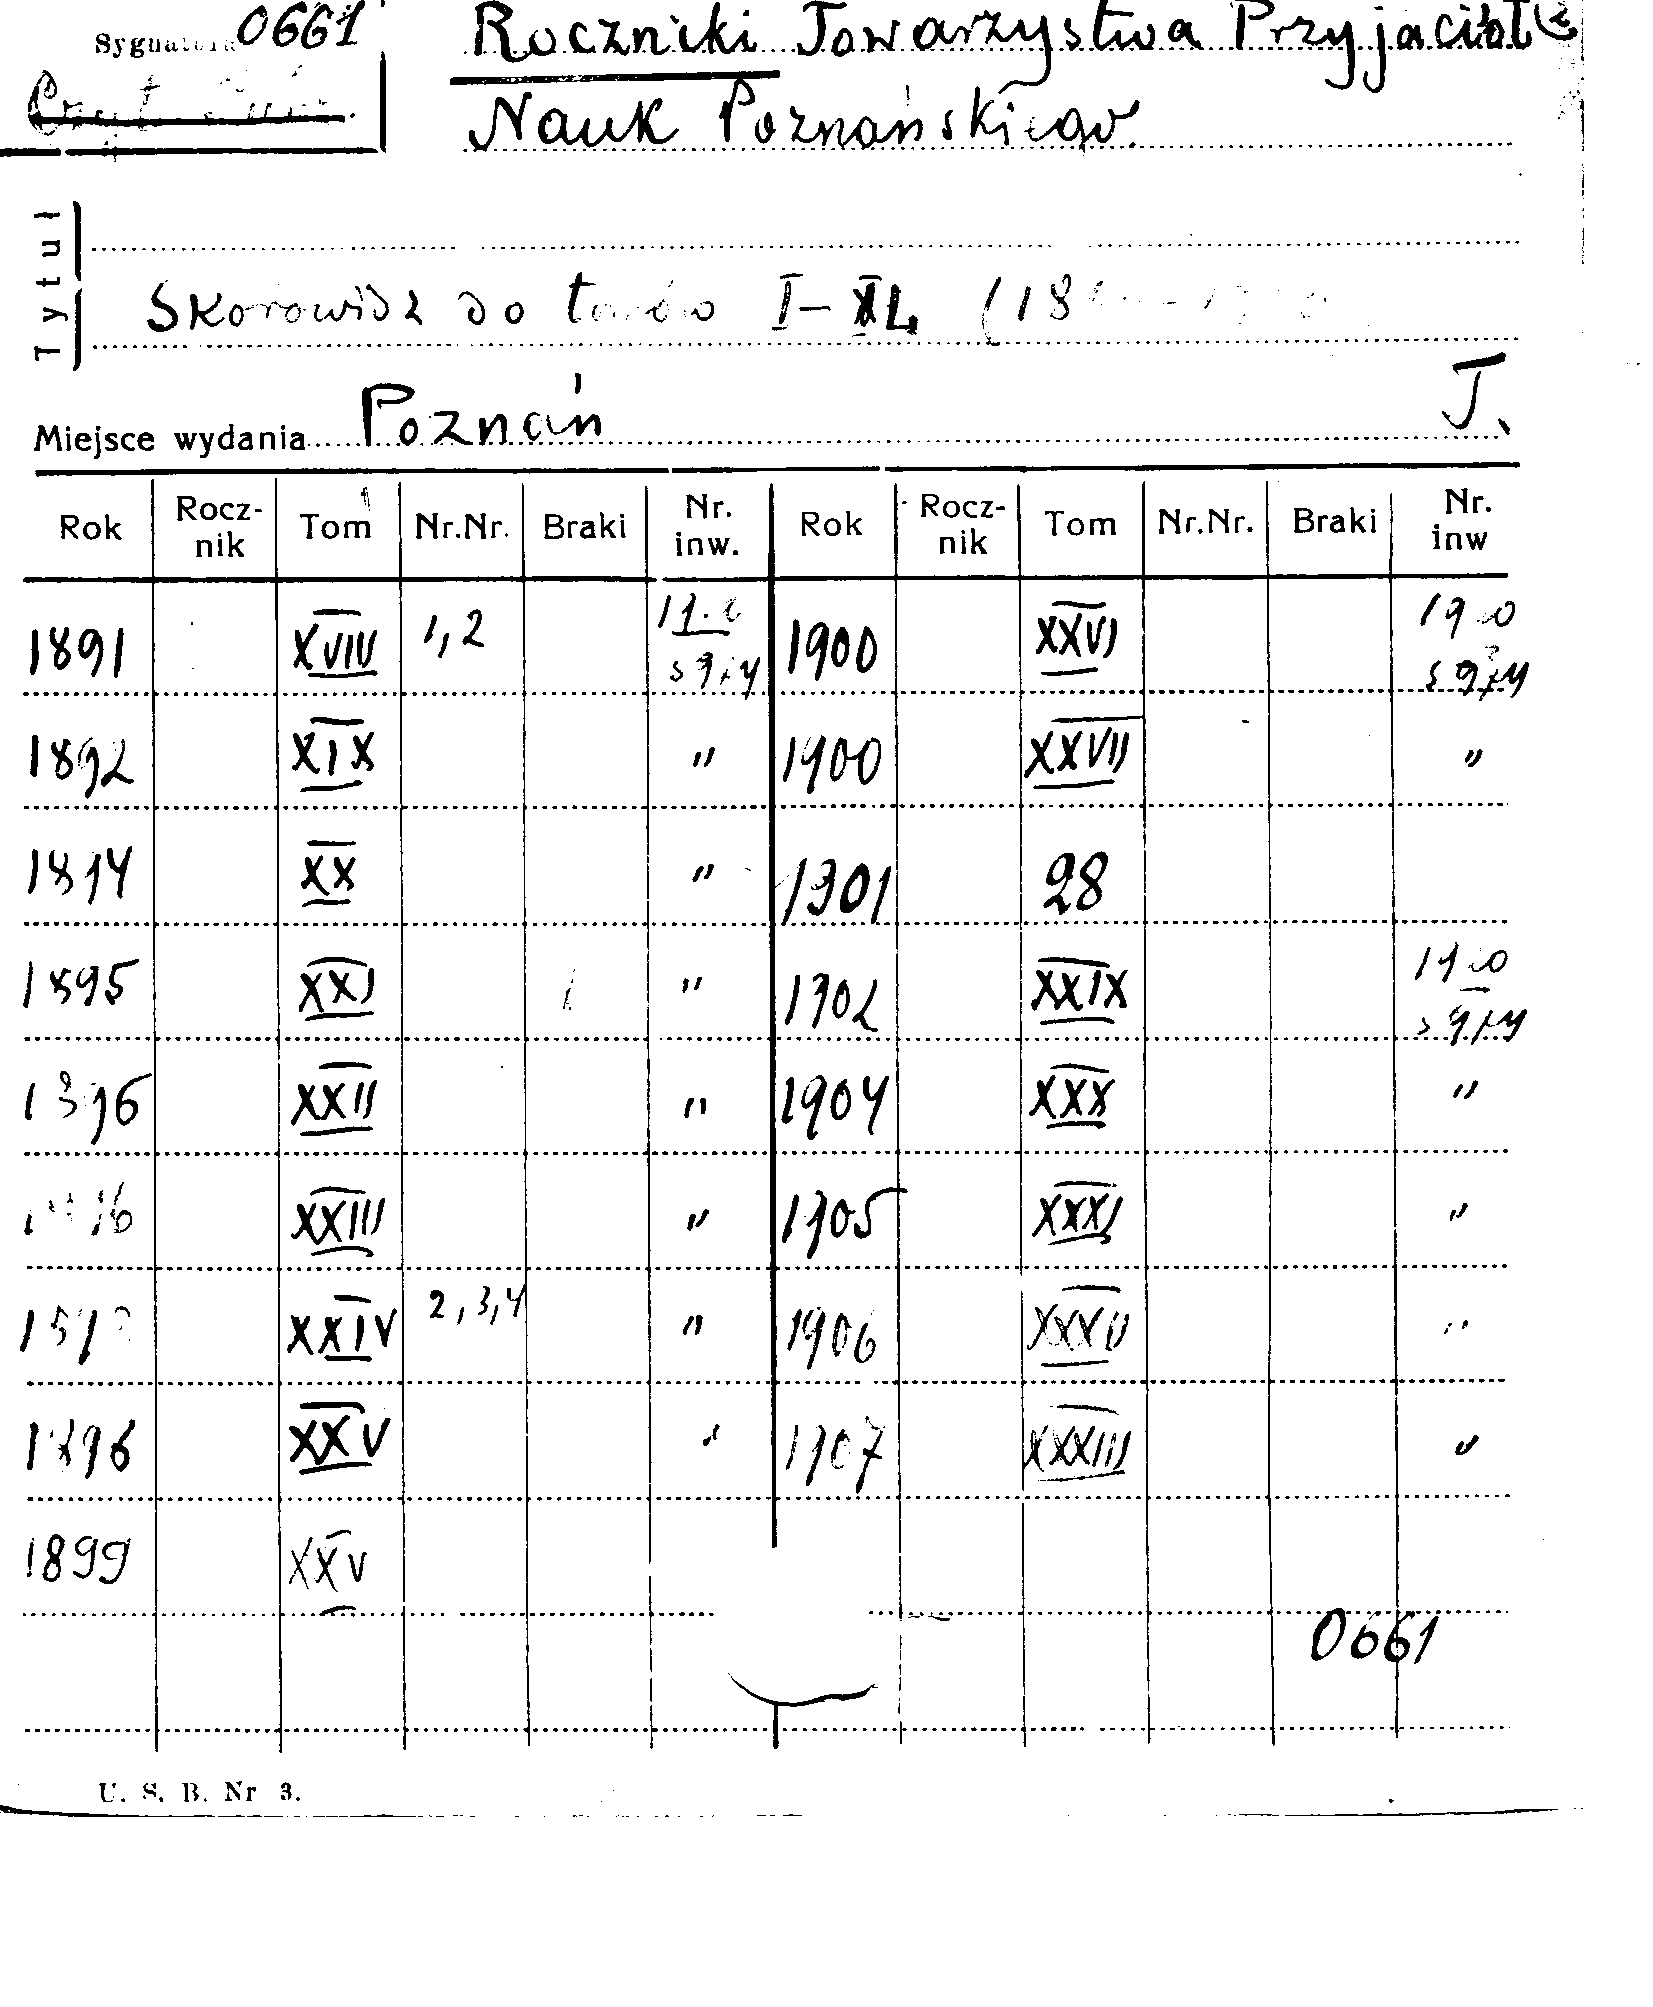 Sygnatura 0661
Roczniki Towarzystwa Przyjaciół
Nauk Poznańskiego.
Tytuł
Skorowidz do tomów I–XL (18
Miejsce wydania Poznań T.
Rok Rocz-nik Tom Nr.Nr. Braki Nr. inw. Rok Rocz-nik Tom Nr.Nr. Braki Nr. inw
1891 XVIII 1,2 1900 XXVI
1892 XIX " 1900 XXVII "
1894 XX " 1901 28
1895 XXI " 1902 XXIX
1896 XXII " 1904 XXX "
XXIII " 1905 XXXI "
XXIV 2,3,4 " 1906 XXXII "
1896 XXV " 1907 XXXIII "
1899 XXV
0661
U. S. B. Nr 3.